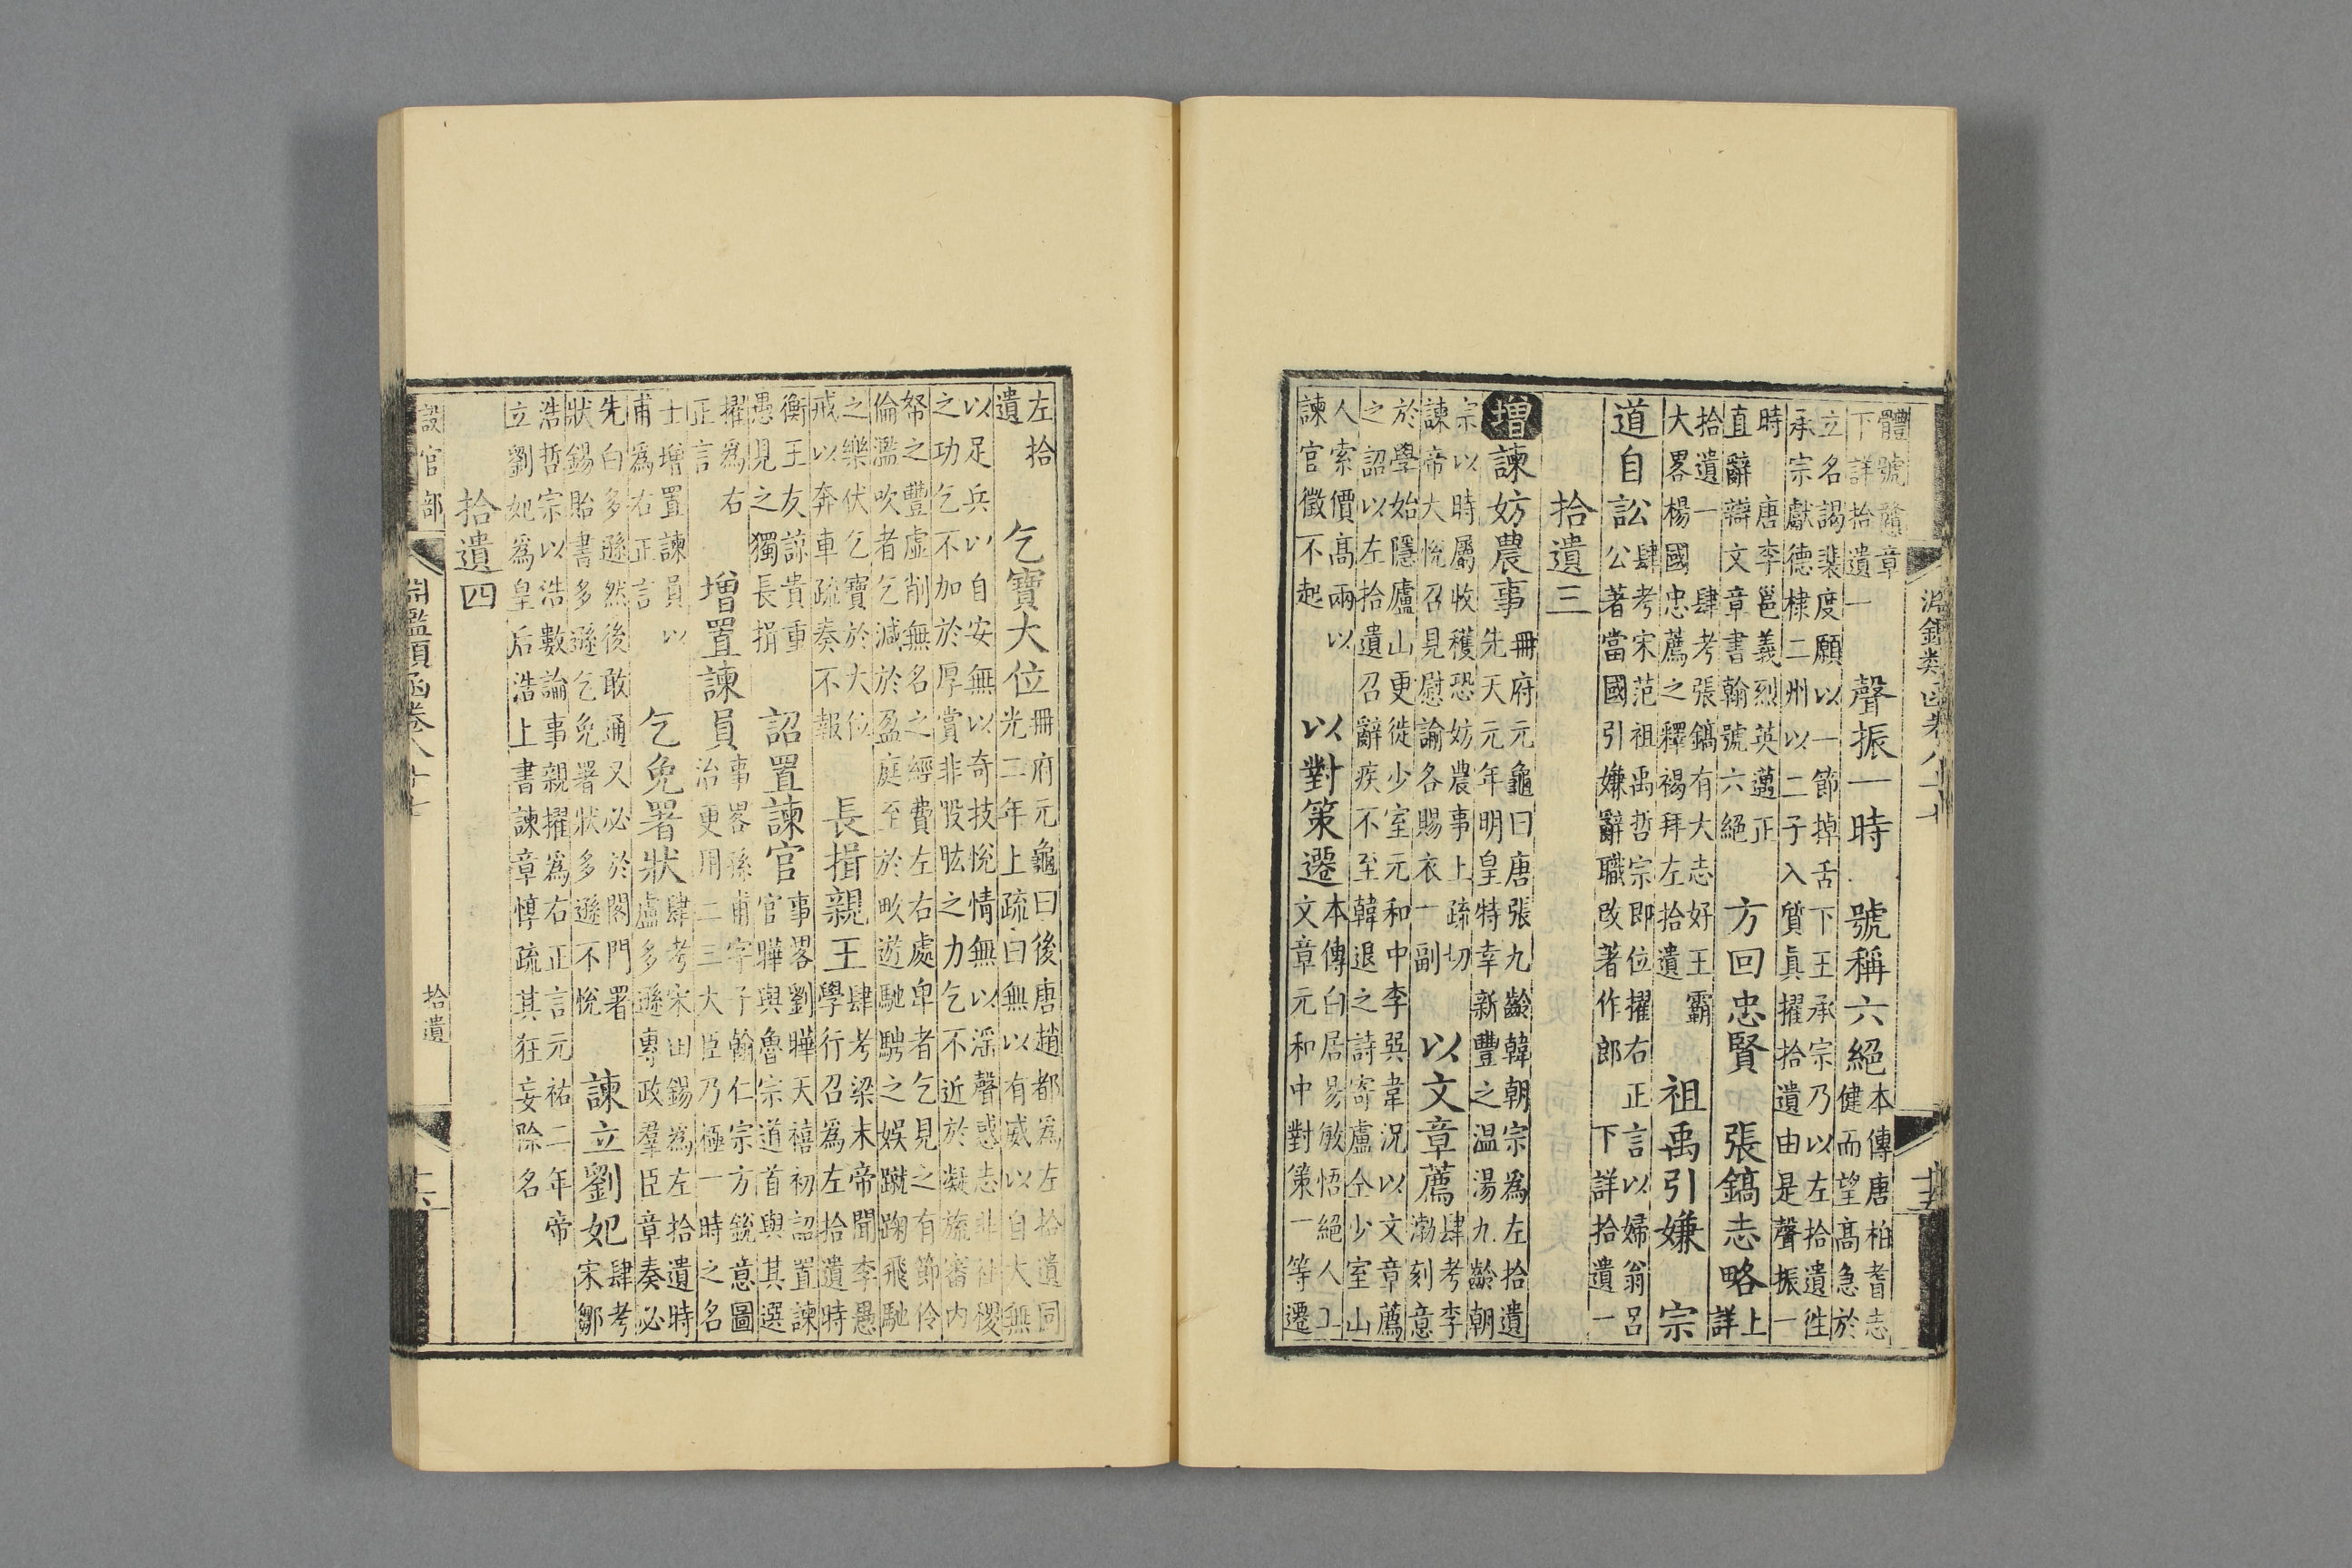 淵鑑類函卷八十七 十五
體號贛章
下詳拾遺一
聲振一時 號稱六絕
本傳唐柏耆志
健而望高急於
立名謁裴度願以一節掉舌下王承宗乃以左拾遺徃
承宗獻德棣二州以二子入質真擢拾遺由是聲振一
時 唐李邕義烈英邁正
直辭辯文章書翰號六絕
方回忠賢 張鎬志略
詳上
拾遺一 肆考張鎬有大志好王霸
大畧楊國忠薦之釋褐拜左拾遺
祖禹引嫌 宗
道自訟
肆考宋范祖禹哲宗即位擢右正言以婦翁呂
公著當國引嫌辭職改著作郎 下詳拾遺一
拾遺三
增諫妨農事
冊府元龜曰唐張九齡韓朝宗為左拾遺
先天元年明皇特幸新豐之温湯九齡朝
宗以時屬收穫恐妨農事上疏切
諫帝大悅召見慰諭各賜衣一副
以文章薦
肆考李
渤刻意
於學始隱廬山更徙少室元和中李巽韋況以文章薦
之詔以左拾遺召辭疾不至韓退之詩寄盧仝少室山
人索價高兩以
諫官徵不起
以對策遷
本傳白居易敏悟絕人工
文章元和中對策一等遷
左拾
遺
乞寶大位
冊府元龜曰後唐趙都為左拾遺同
光二年上疏曰無以有威以自大無
以足兵以自安無以奇技悅情無以淫聲惑志非社稷
之功乞不加於厚賞非股肱之力乞不近於凝旒審內
帑之豐虛削無名之經費左右處卑者乞見之有節伶
倫濫吹者乞減於盈庭至於畋遊馳騁之娛蹴踘飛馳
之樂伏乞寶於大位
戒以奔車疏奏不報
長揖親王
肆考梁末帝聞李愚
學行召為左拾遺時
衡王友諒貴重
愚見之獨長揖
詔置諫官
事畧劉曄天禧初詔置諫
官曄與魯宗道首與其選
擢為右
正言
增置諫員
事畧孫甫字子翰仁宗方銳意圖
治更用二三大臣乃極一時之名
士增置諫員以
甫為右正言
乞免署狀
肆考宋田錫為左拾遺時
盧多遜專政羣臣章奏必
先白多遜然後敢通又必於閤門署
狀錫貽書多遜乞免署狀多遜不悅
諫立劉妃
肆考
宋鄒
浩哲宗以浩數論事親擢為右正言元祐二年帝
立劉妃為皇后浩上書諫章惇疏其狂妄除名
拾遺四
設官部
淵鑑類函卷八十七 拾遺 十六